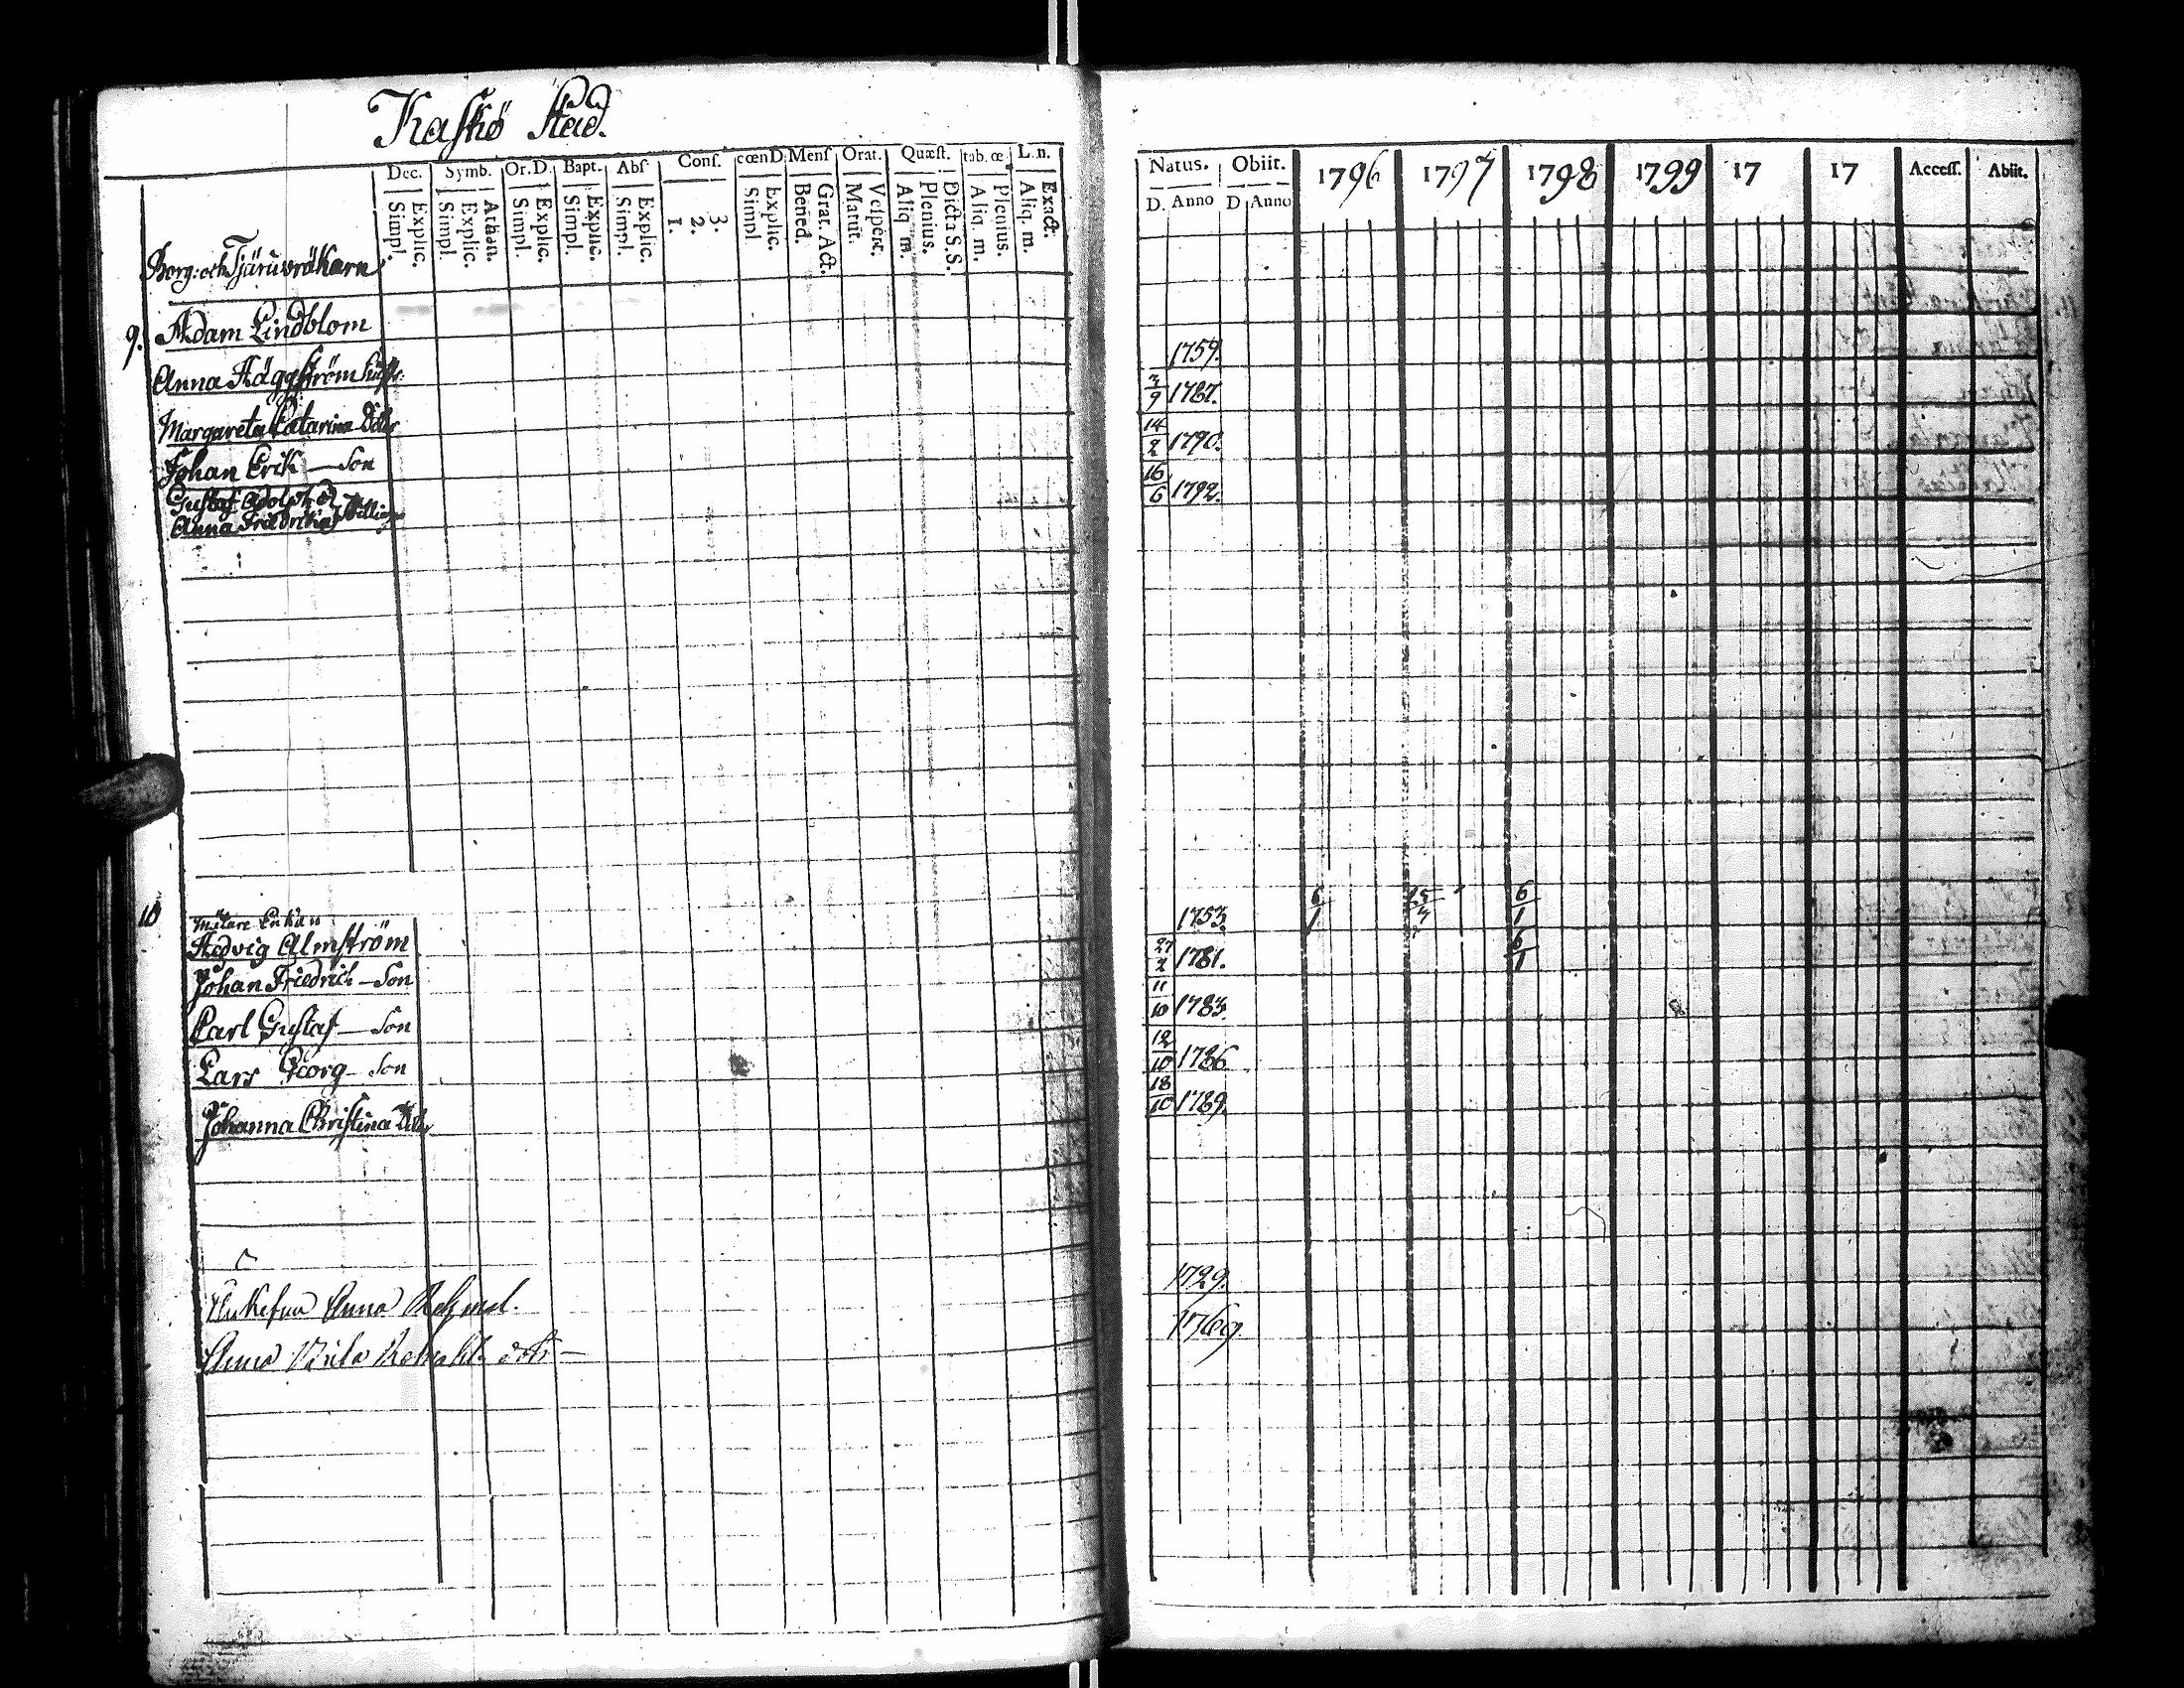 Kaskö Stad.
Dec. Symb. Or.D. Bapt. Abs Conf. cœnD Mens Orat. Quæst. tab. œ. L.n.
Simpl. Explic. Simpl. Explic. Athan. Simpl. Explic. Simpl. Explic. Simpl. Explic. 1. 2. 3. Simpl. Explic. Bened. Grat. Act. Matut. Vespert. Aliq. m. Plenius. Dicta S.S. Aliq. m. Plenius. Aliq. m. Exact.
Natus. Obiit. 1796 1797 1798 1799 17 17 Access. Abiit.
D. Anno D Anno
Borg: och Tjäruvräkaren
9. Adam Lindblom
Anna Häggström hustr: 1759.
Margareta Catarina Dotter 3/9 1787.
Johan Erik — Son 14/2 1790.
Gustaf Adolph
Anna Friedrika 16/6 1792.
10 Målare Enkan
Hedvig Almström 1753. 6/1 6/1
Johan Friedrich — Son 27/2 1781. 6/1
Carl Gustaf — Son 11/10 1783.
Lars Georg — Son 12/10 1786
Johanna Christina Dotter 18/10 1789.
Anna 1729.
Anna dotr — 1769.